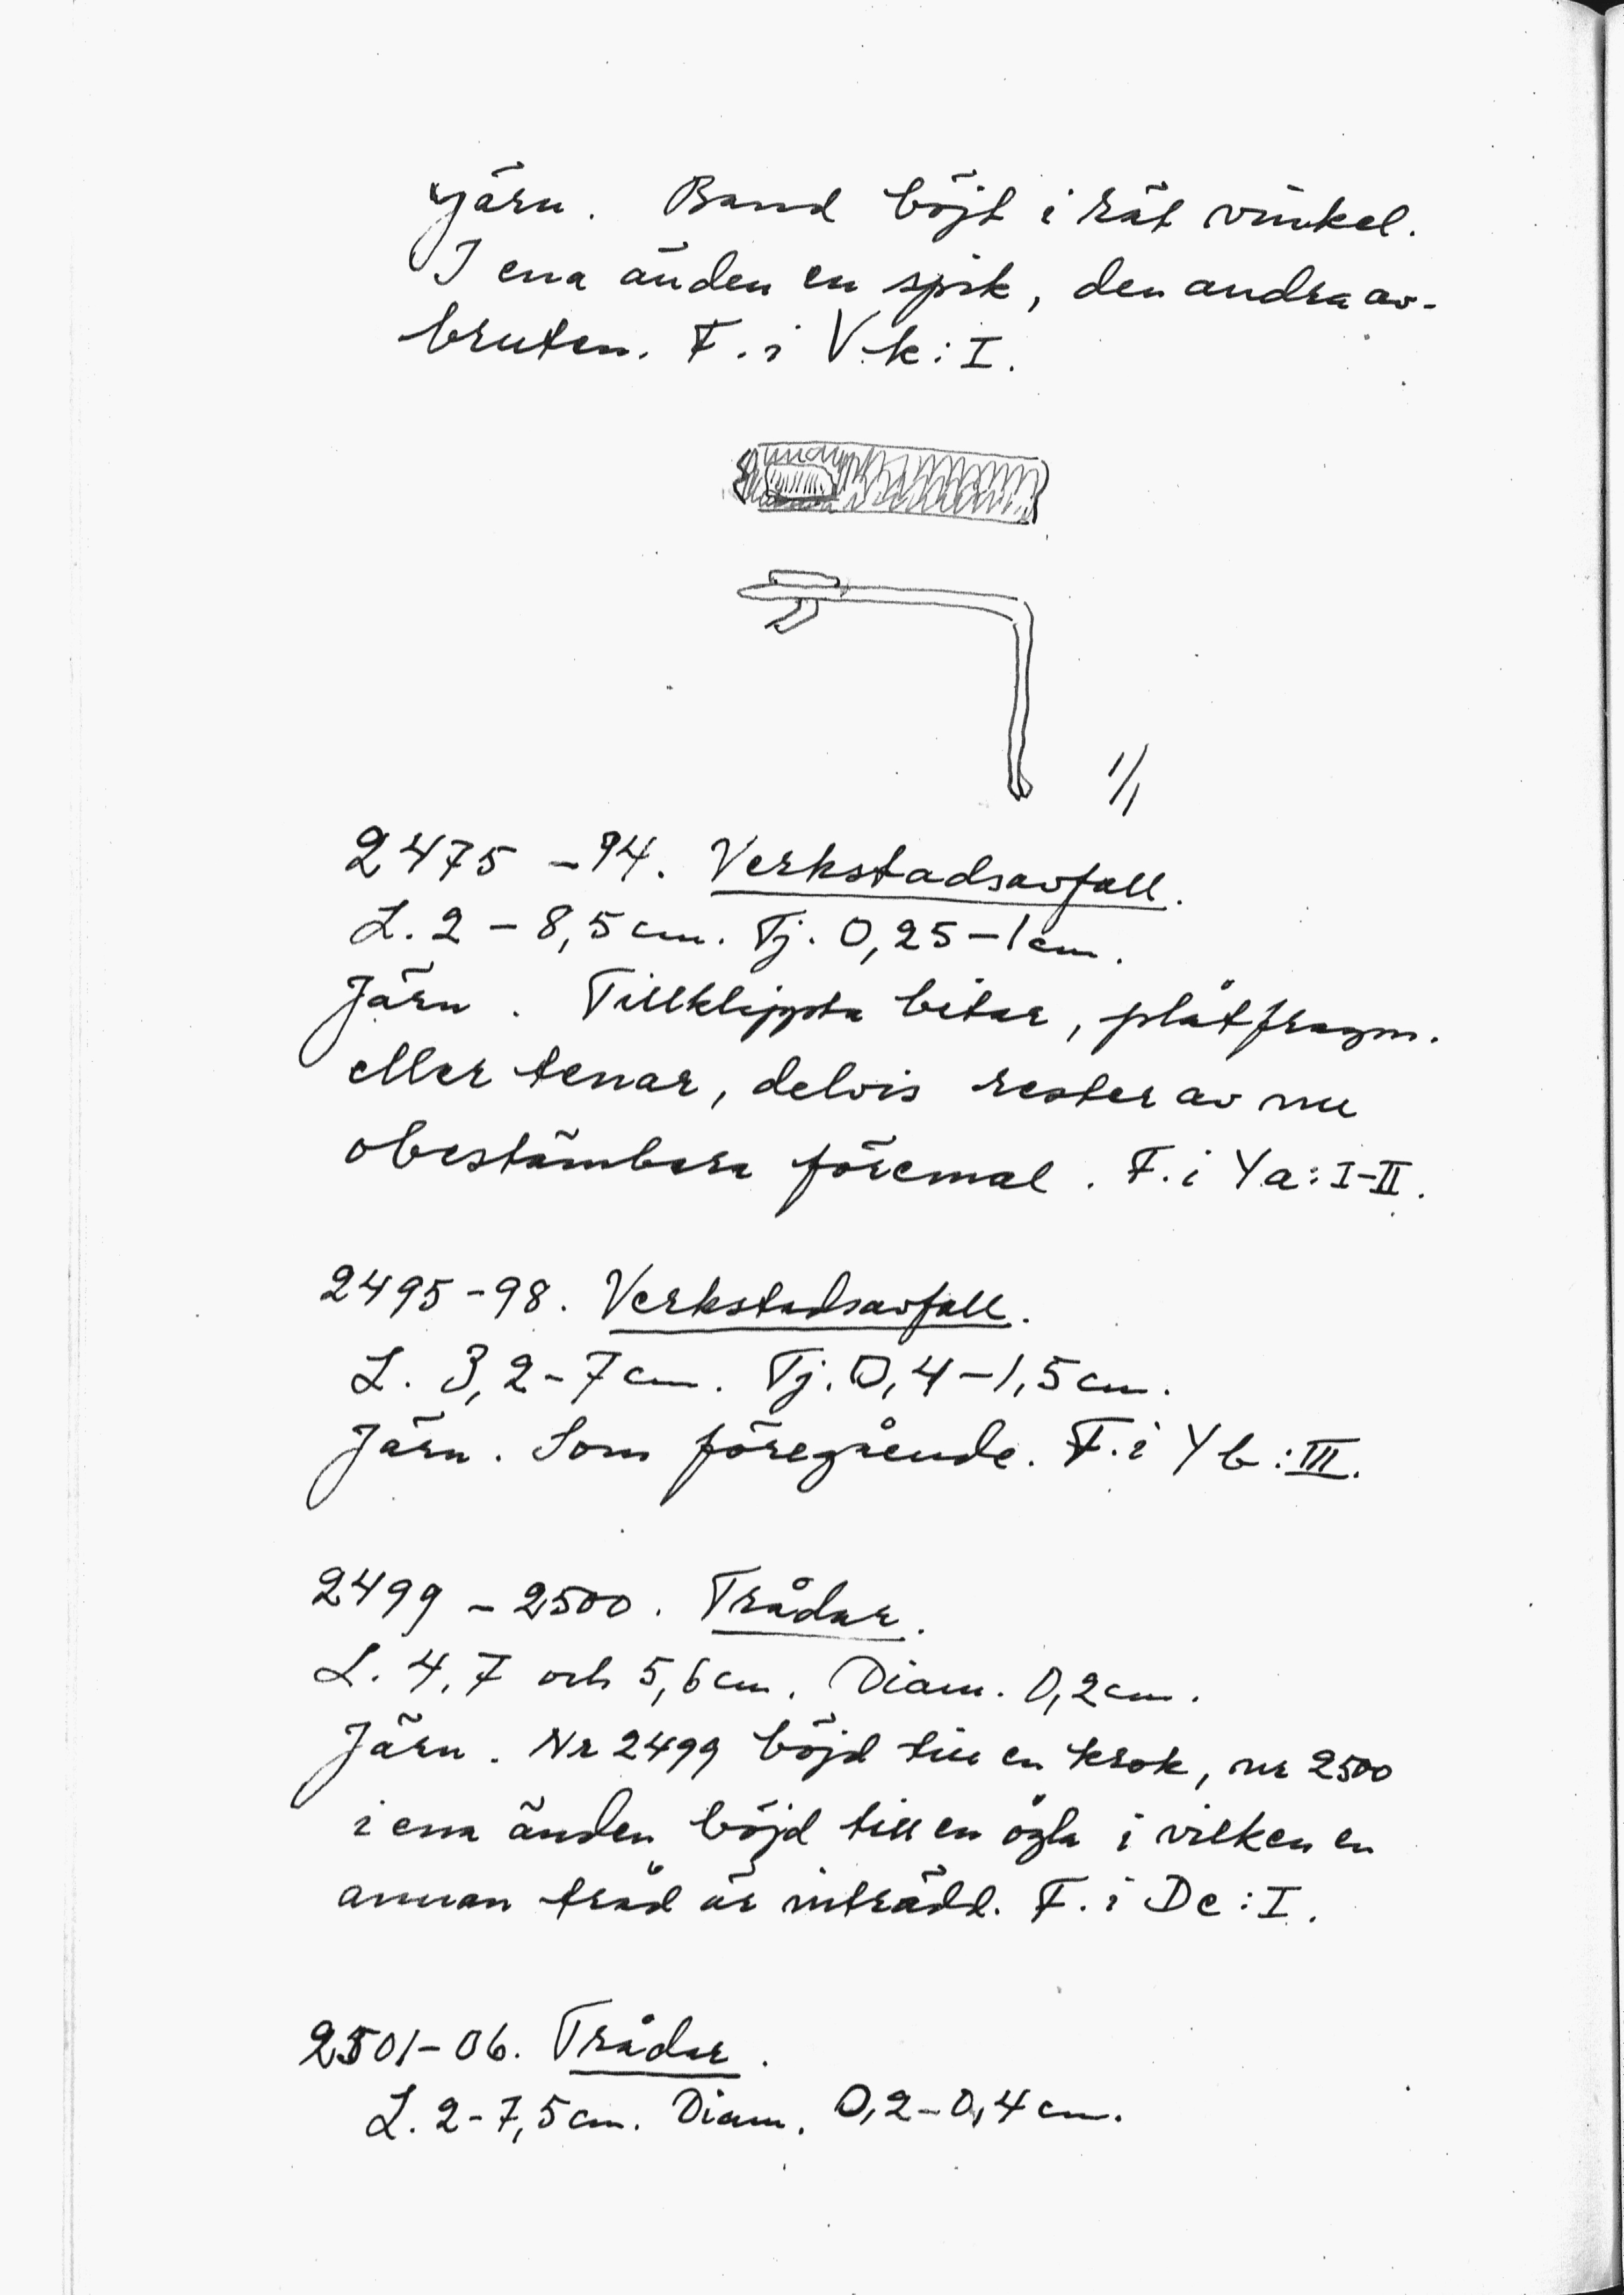 Järn. Band böjt i rät vinkel.
I ena änden en spik, den andra av-
bruten. F. i Vk: I.
1/1
2475 - 94. Verkstadsavfall.
L. 2 - 8,5 cm. Tj. 0,25 - 1 cm.
Järn. Tillklippta bitar, plåtfragm.
eller tenar, delvis rester av nu
obestämbara föremål. F. i Ya: I-II.
2495-98. Verkstadsavfall.
L. 3,2-7 cm. Tj. 0,4-1,5 cm.
Järn. Som föregående. F. i Yb: III.
2499 - 2500. Trådar.
L. 4,7 och 5,6 cm. Diam. 0,2 cm.
Järn. Nr 2499 böjd till en krok, nr 2500
i ena änden böjd till en ögla i vilken en
annan tråd är inträdd. F. i Dc: I.
2501-06. Trådar.
L. 2-7,5 cm. Diam. 0,2-0,4 cm.